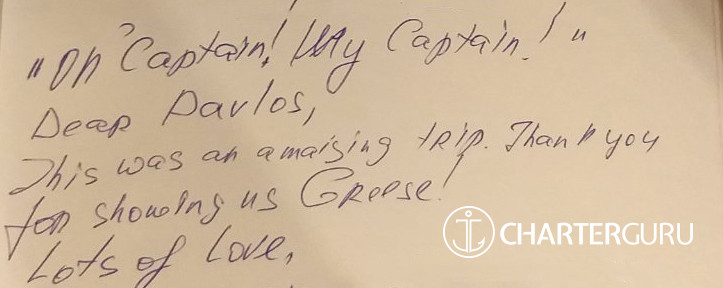 "Oh Captain! My Captain!"
Dear Pavlos,
This was an amaising trip. Thank you
for showing us Greese!
Lots of Love,
CHARTERGURU